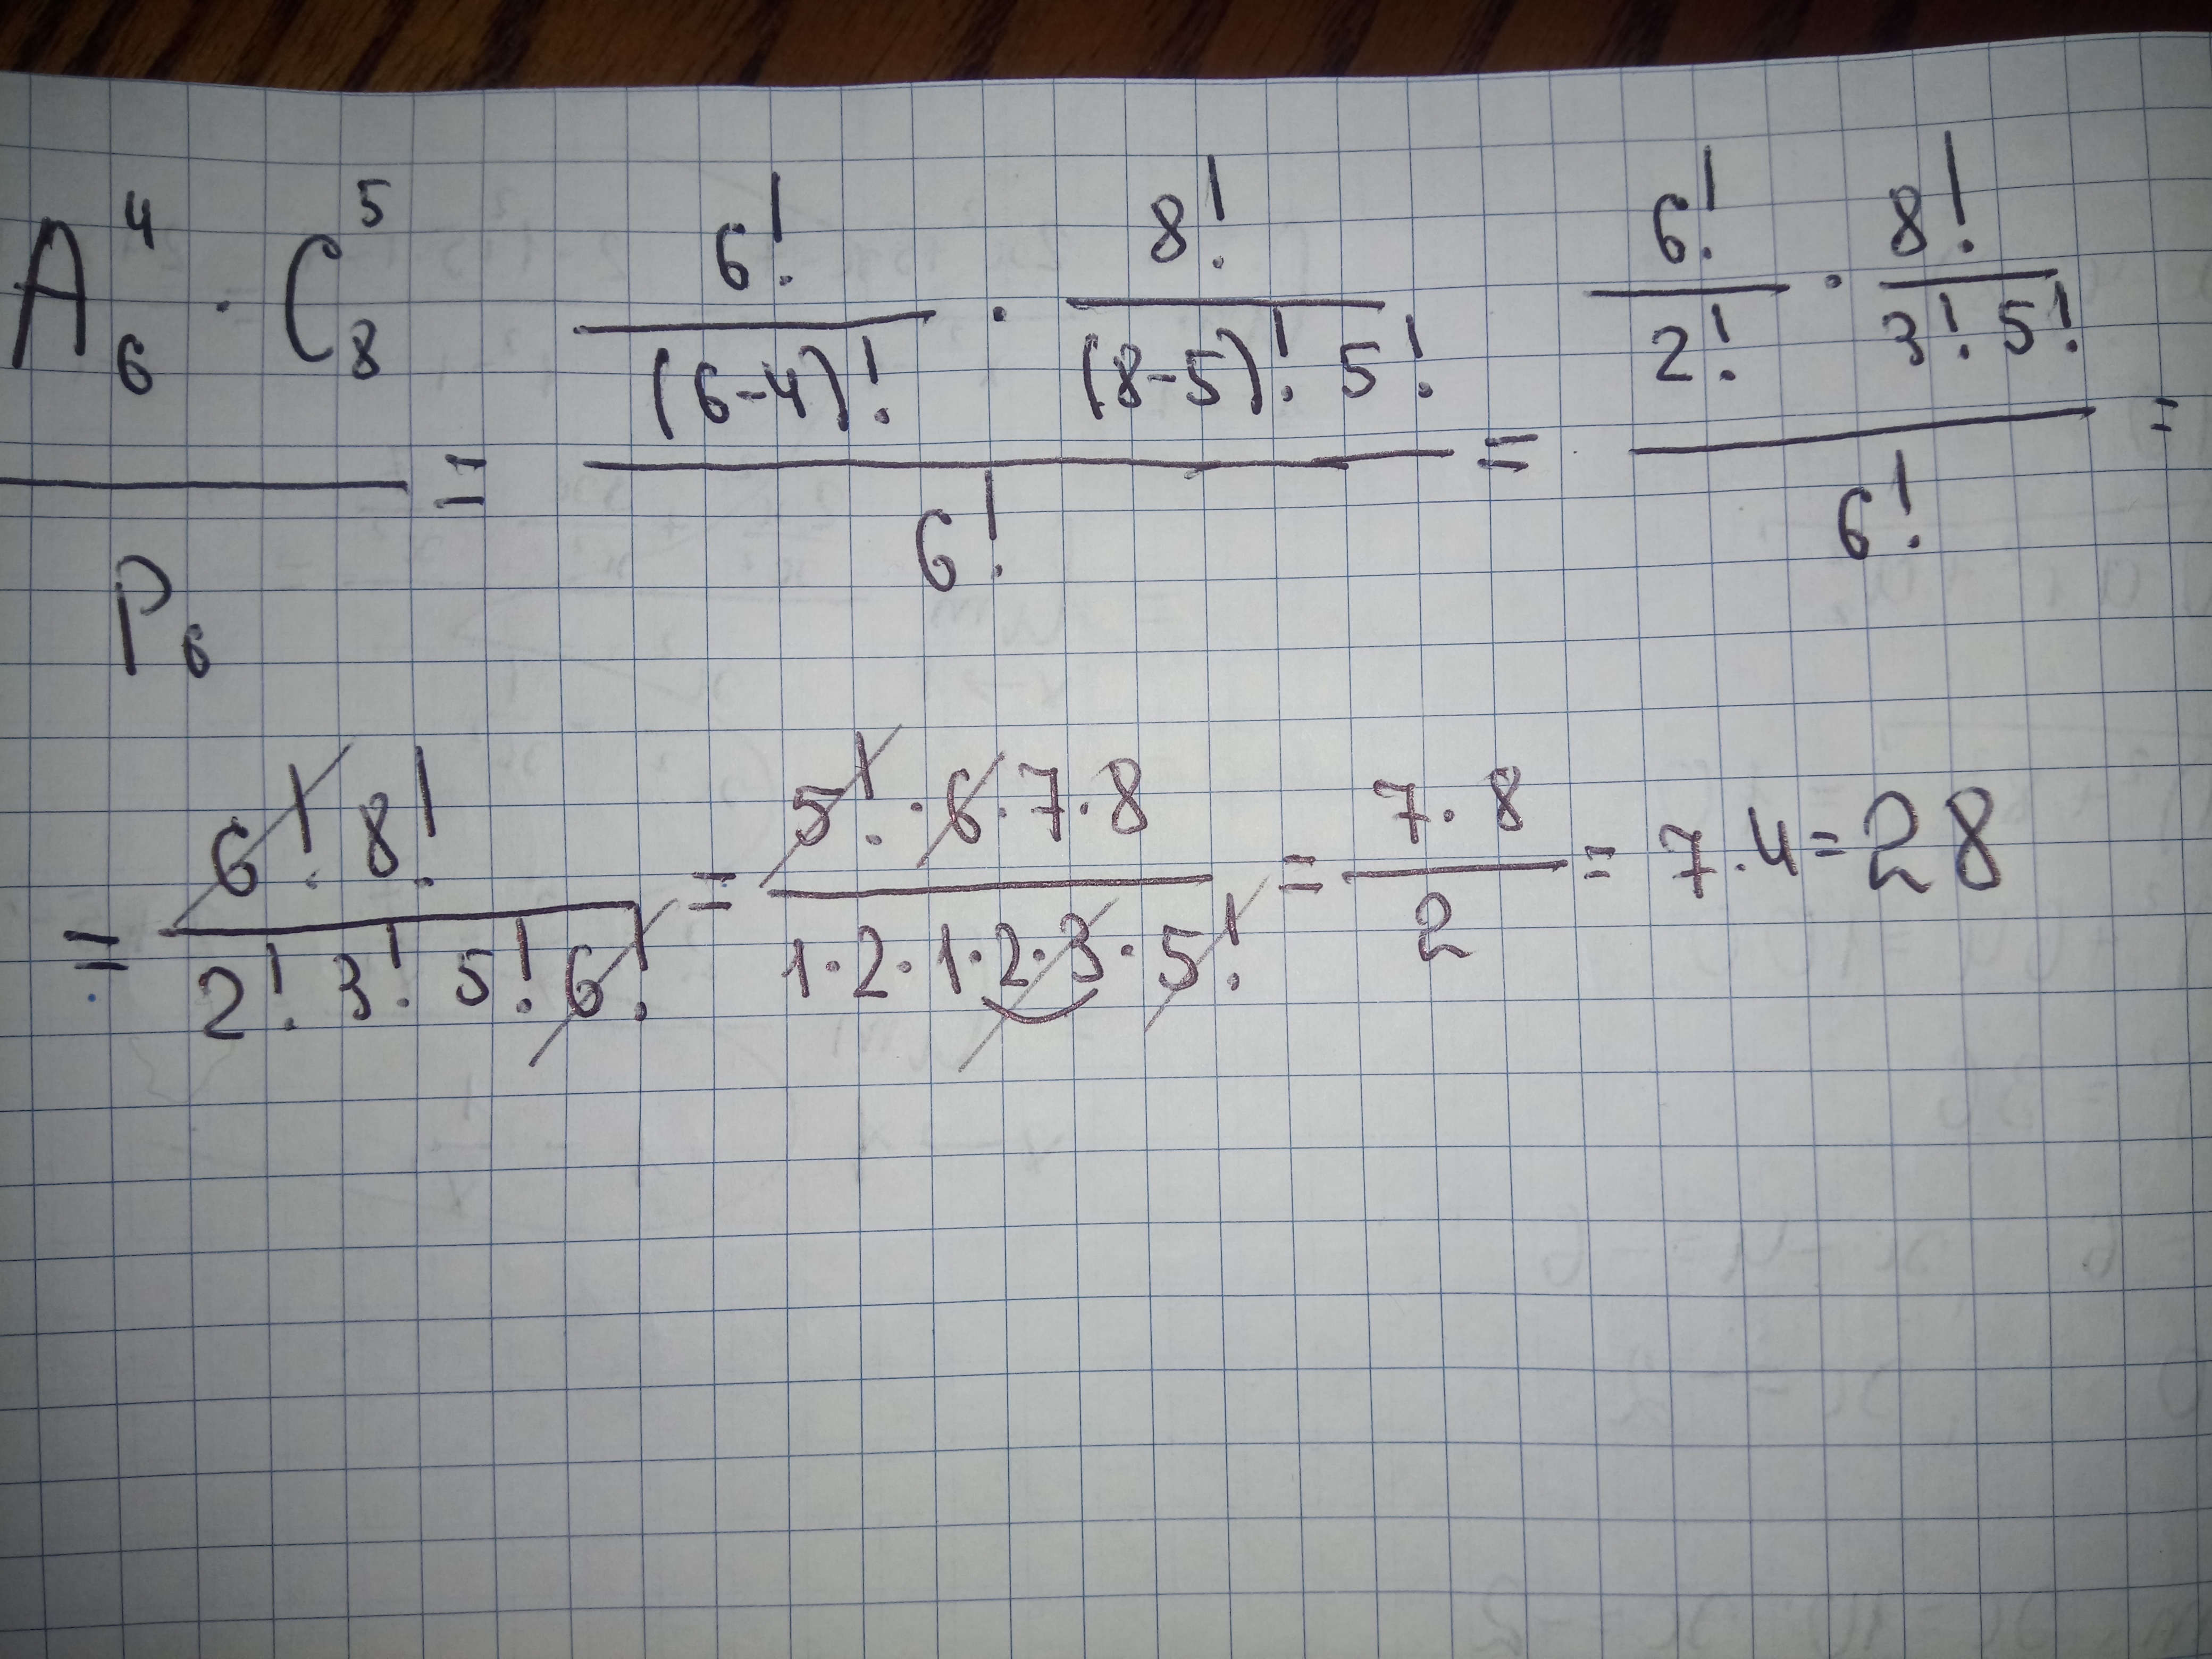 A_6^4 · C_8^5 / P_6 = (6! / (6-4)! · 8! / (8-5)! 5!) / 6! = (6! / 2! · 8! / 3! 5!) / 6! =
= 6! 8! / 2! 3! 5! 6! = 5! · 6 · 7 · 8 / 1 · 2 · 1 · 2 · 3 · 5! = 7 · 8 / 2 = 7 · 4 = 28